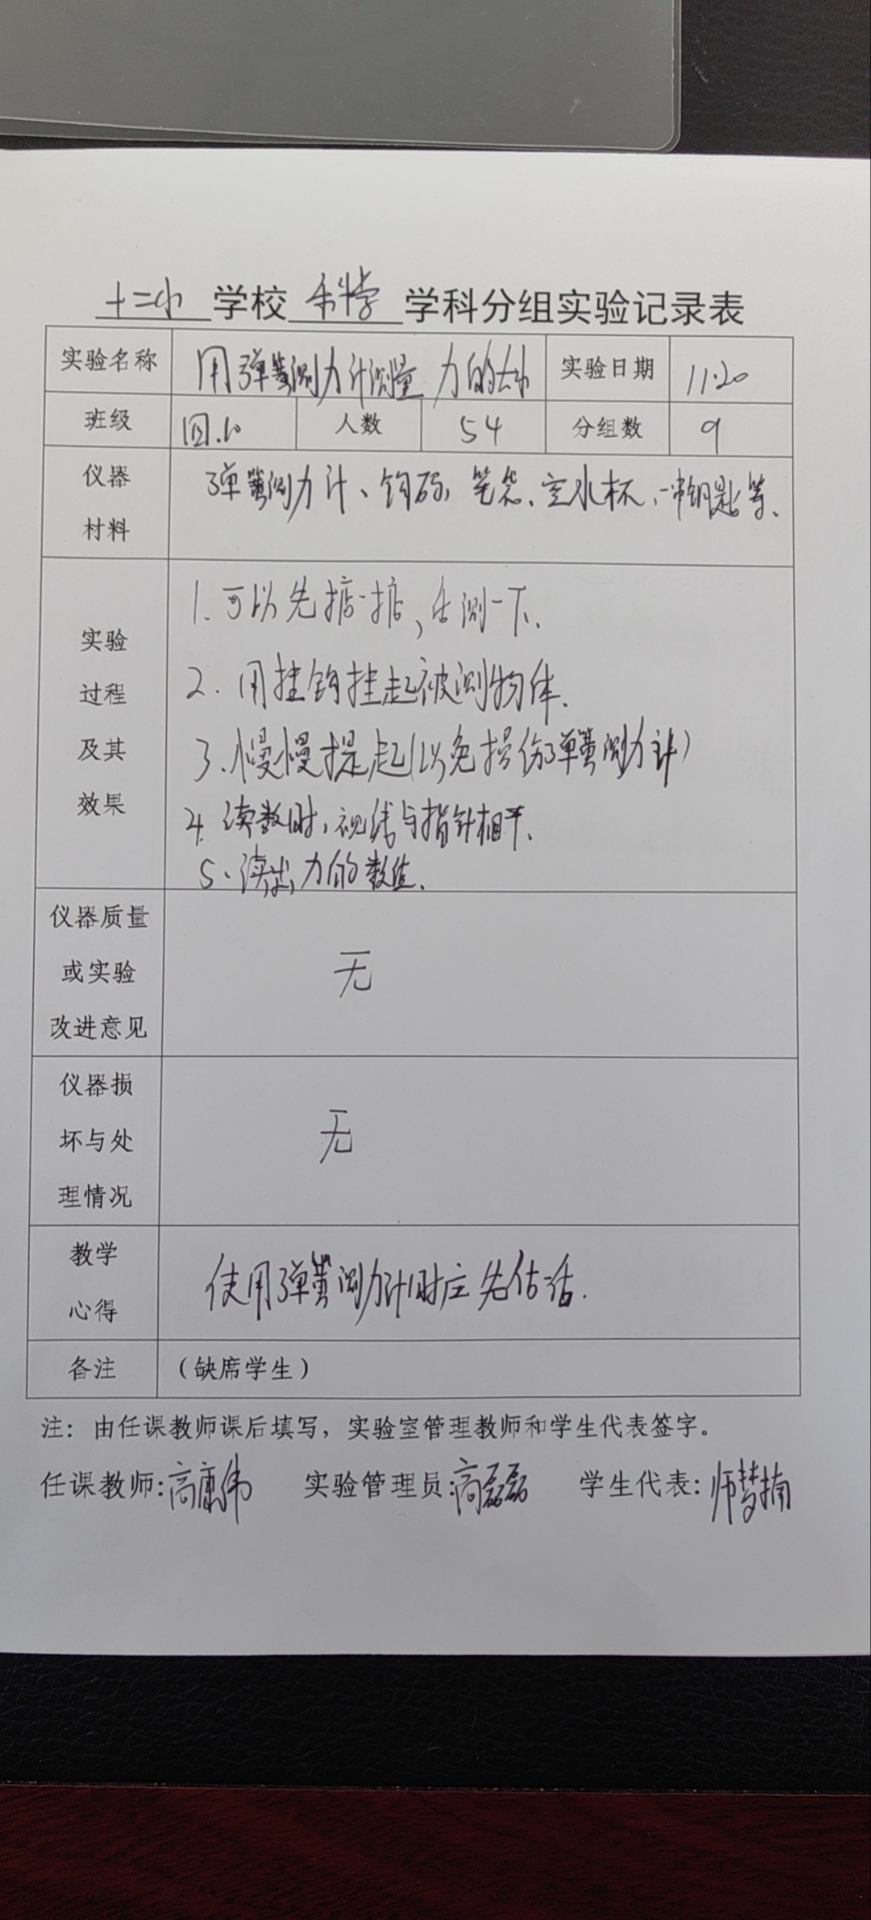 十二小学校科学学科分组实验记录表
实验名称 用弹簧测力计测量力的大小 实验日期 11.20
班级 四.10 人数 54 分组数 9
仪器材料 弹簧测力计、钩码、笔袋、空水杯、一串钥匙等、
实验过程及其效果
1.可以先掂一掂,估测一下.
2.用挂钩挂起被测物体.
3.慢慢提起(以免损伤弹簧测力计)
4.读数时,视线与指针相平.
5、读出力的数值.
仪器质量或实验改进意见 无
仪器损坏与处理情况 无
教学心得 使用弹簧测力计时应先估
备注 (缺席学生)
注:由任课教师课后填写,实验室管理教师和学生代表签字。
任课教师:高康伟 实验管理员:高磊磊 学生代表:师梦楠